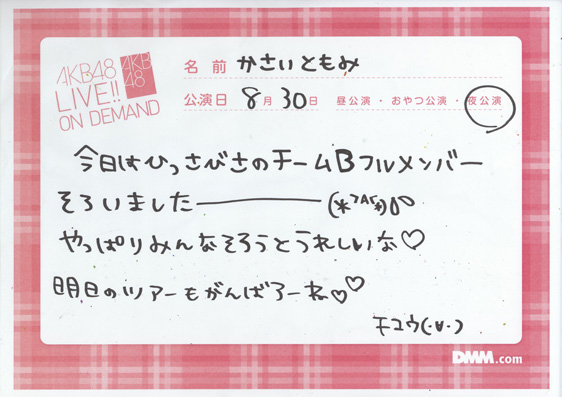 AKB48
LIVE!!
ON DEMAND
AKB
48
名前 かさいともみ
公演日 8月30日 昼公演・おやつ公演・夜公演
今日はひっさびさのチームBフルメンバー
そろいました――――(*^A^*)
やっぱりみんなそろうとうれしいな♡
明日のツアーもがんばろーね♡♡
チユウ(・∀・)
DMM.com